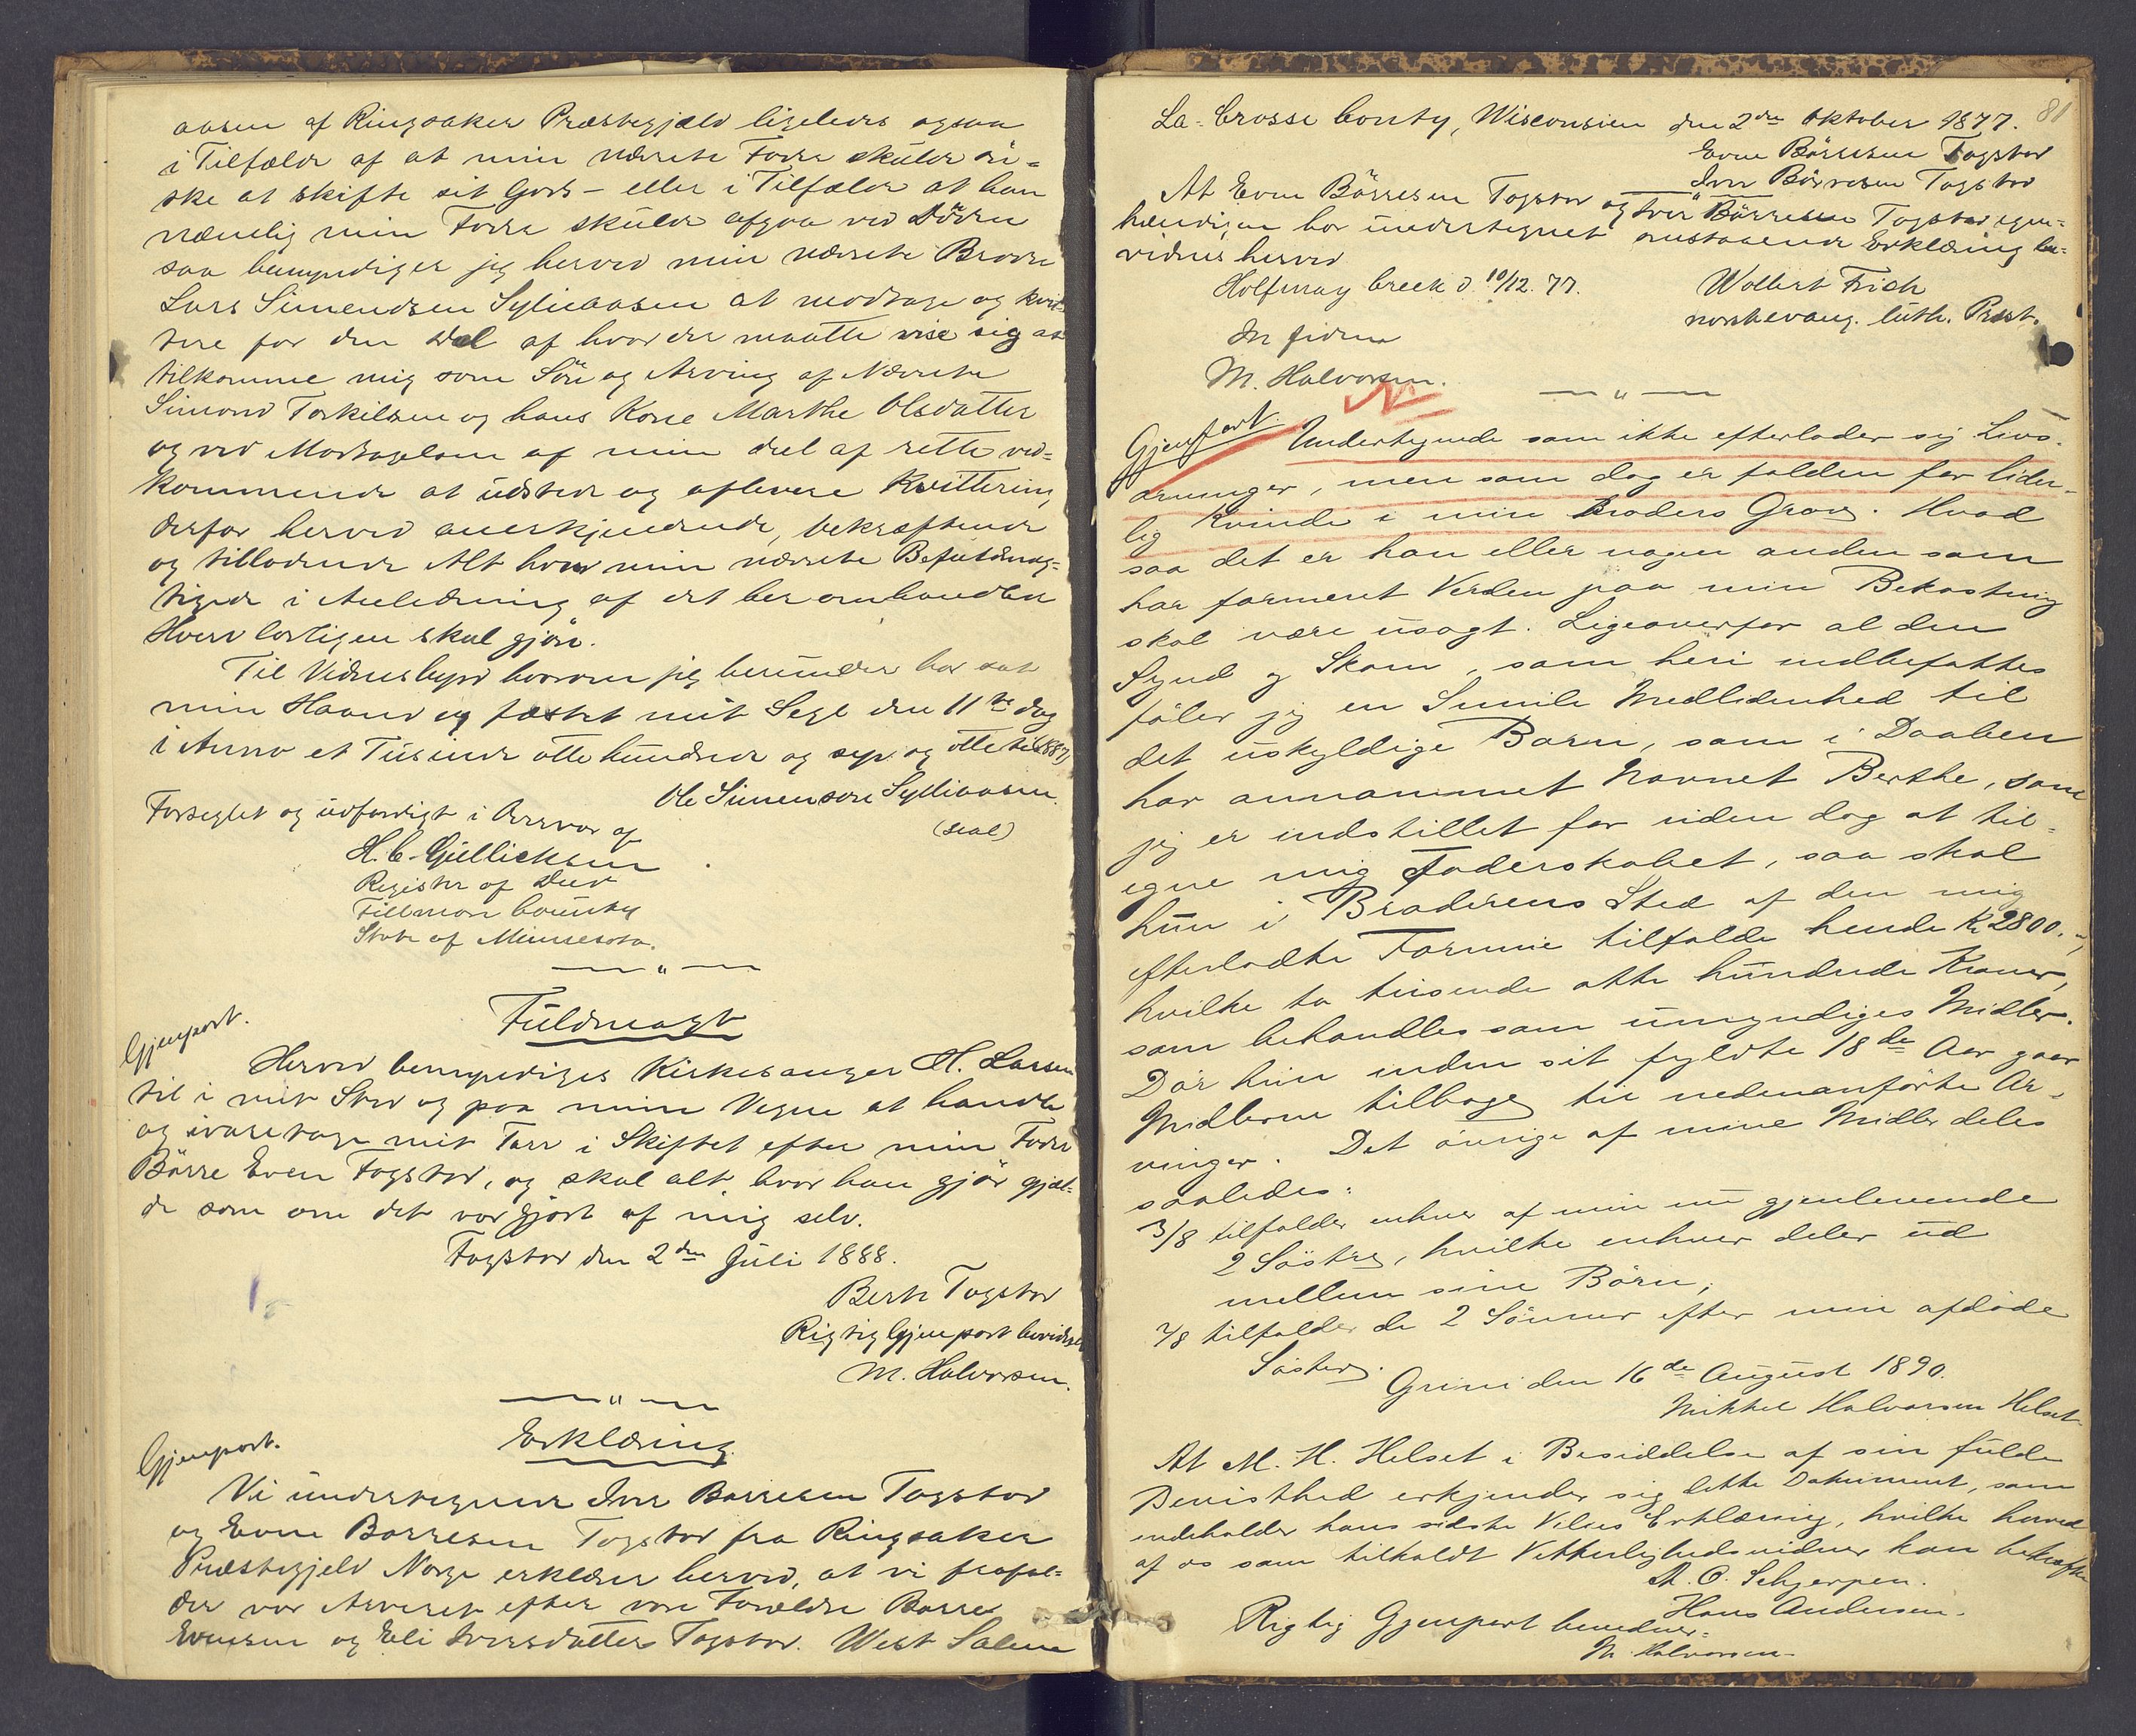 aasen af Ringsaker Præstegjæld ligeledes ogsaa
i Tilfælde af at min nævnte Fader skulde øn=
ske at skifte sit Gods – eller i Tilfælde at han
nemlig min Fader skulde afgaa ved Døden
saa bemyndiger jeg herved min nævnte Broder
Lars Simendsen Sylliaasen at modtage og kvit=
tere for den Del af hvad der maatte vise sig at
tilkomme mig som Søn og Arving af Nævnte
Simond Torkilsen og hans Kone Marthe Olsdatter
og ved Modtagelsen af min del af rette ved=
kommende at udstede og aflevere Kvittering
derfor herved anerkjendende, bekræftende
og tilladende Alt hvad min nævnte Befuldmæg=
tigede i Anledning af det her omhandlede
Hverv lovligen skal gjøre.
Til Vidnesbyrd hvorom jeg herunder har sat
min Haand og fæstet mit Segl den 11te dag
i Anno et Tusinde otte hundrede og syv og otteti (1887)
Ole Simensen Sylliaasen.
(Seal)
Forseglet og udfærdigt i Overvær af
H. C. Gullicksen
Register of Deed
Fillmore County
State of Minnesota.
Gjenpart.
Fuldmagt
Herved bemyndiges Kirkesanger H. Larsen
til i mit Sted og paa mine Vegne at handle
og ivaretage mit Tarv i Skiftet efter min Fader
Børre Even Fogstad, og skal alt hvad han gjør gjæl=
de som om det var gjort af mig selv.
Fogstad den 2den Juli 1888.
Berte Fogstad
Rigtig Gjenpart bevidner
M. Halvorsen.
Gjenpart.
Erklæring.
Vi undertegnede Iver Børresen Fogstad
og Even Børresen Fogstad fra Ringsaker
Præstegjeld Norge erklærer herved, at vi frafal=
der vor Arveret efter vore Forældre Børre
Evensen og Eli Iversdatter Fogstad. West Salem
81
La-Crosse Conty, Wisconsien den 2den Oktober 1877.
Even Børresen Fogstad
Iver Børresen Fogstad
At Even Børresen Fogstad og Iver Børresen Fogstad egen=
hændigen har undertegnet ovstaaende Erklæring be=
vidnes herved
Holfway Creek d. 10/12. 77.
Wollert Frich
norskevang. luth. Præst.
In fidem
M. Halvorsen.
Gjenpart.
Undertegnede som ikke efterlader sig Livs=
arvinger, men som dog er falden for lider=
lig Kvinde i min Broders Grav. Hvad
saa det er han eller nogen anden som
har formeret Verden paa min Bekostning
skal være usagt. Ligeoverfor al den
Synd og Skam, som heri indbefattes
føler jeg en Smule Medlidenhed til
det uskyldige Barn, som i Daaben
har annammet Navnet Berthe, som
jeg er indstillet for uden dog at til=
egne mig Faderskabet, saa skal
hun i Broderens Sted af den mig
efterladte Formue tilfalde hende Kr 2800.-,
hvilke to tusende otte hundrede Kroner,
som behandles som umyndiges Midler.
Dør hun inden sit fyldte 18de Aar gaar
Midlerne tilbage til nedenanførte Ar=
vinger. Det øvrige af mine Midler deles
saaledes:
3/8 tilfalder enhver af min nu gjenlevende
2 Søstre, hvilke enhver deler ud
mellem sine Børn,
2/8 tilfalder de 2 Sønner efter min afdøde
Søster.
Grini den 16de August 1890.
Mikkel Halvorsen Helset
At M. H. Helset i Besiddelse af sin fulde
Bevisthed erkjender sig dette Dokument, som
indeholder hans sidste Vilies Erklæring, hvilke herved
af os som tilkaldt Vitterlighedsvidner kan bekræfte
A. O. Schjerpen.
Hans Andersen.
Rigtig Gjenpart bevidner:
M. Halvorsen.